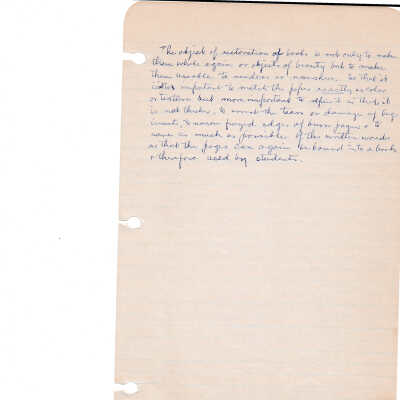 The object of restoration of books is not only to make
them whole again or objects of beauty but to make
them useable to readers or researchers. So that it
important to match the paper exactly as color
or texture but more important to it so that it
is not thicker, to mend the tears or damage of bug
insects, to narrow frayed edges of pages & to
save as much as possible of the written words
so that the pages can again be bound into a book
& therefore used by students.